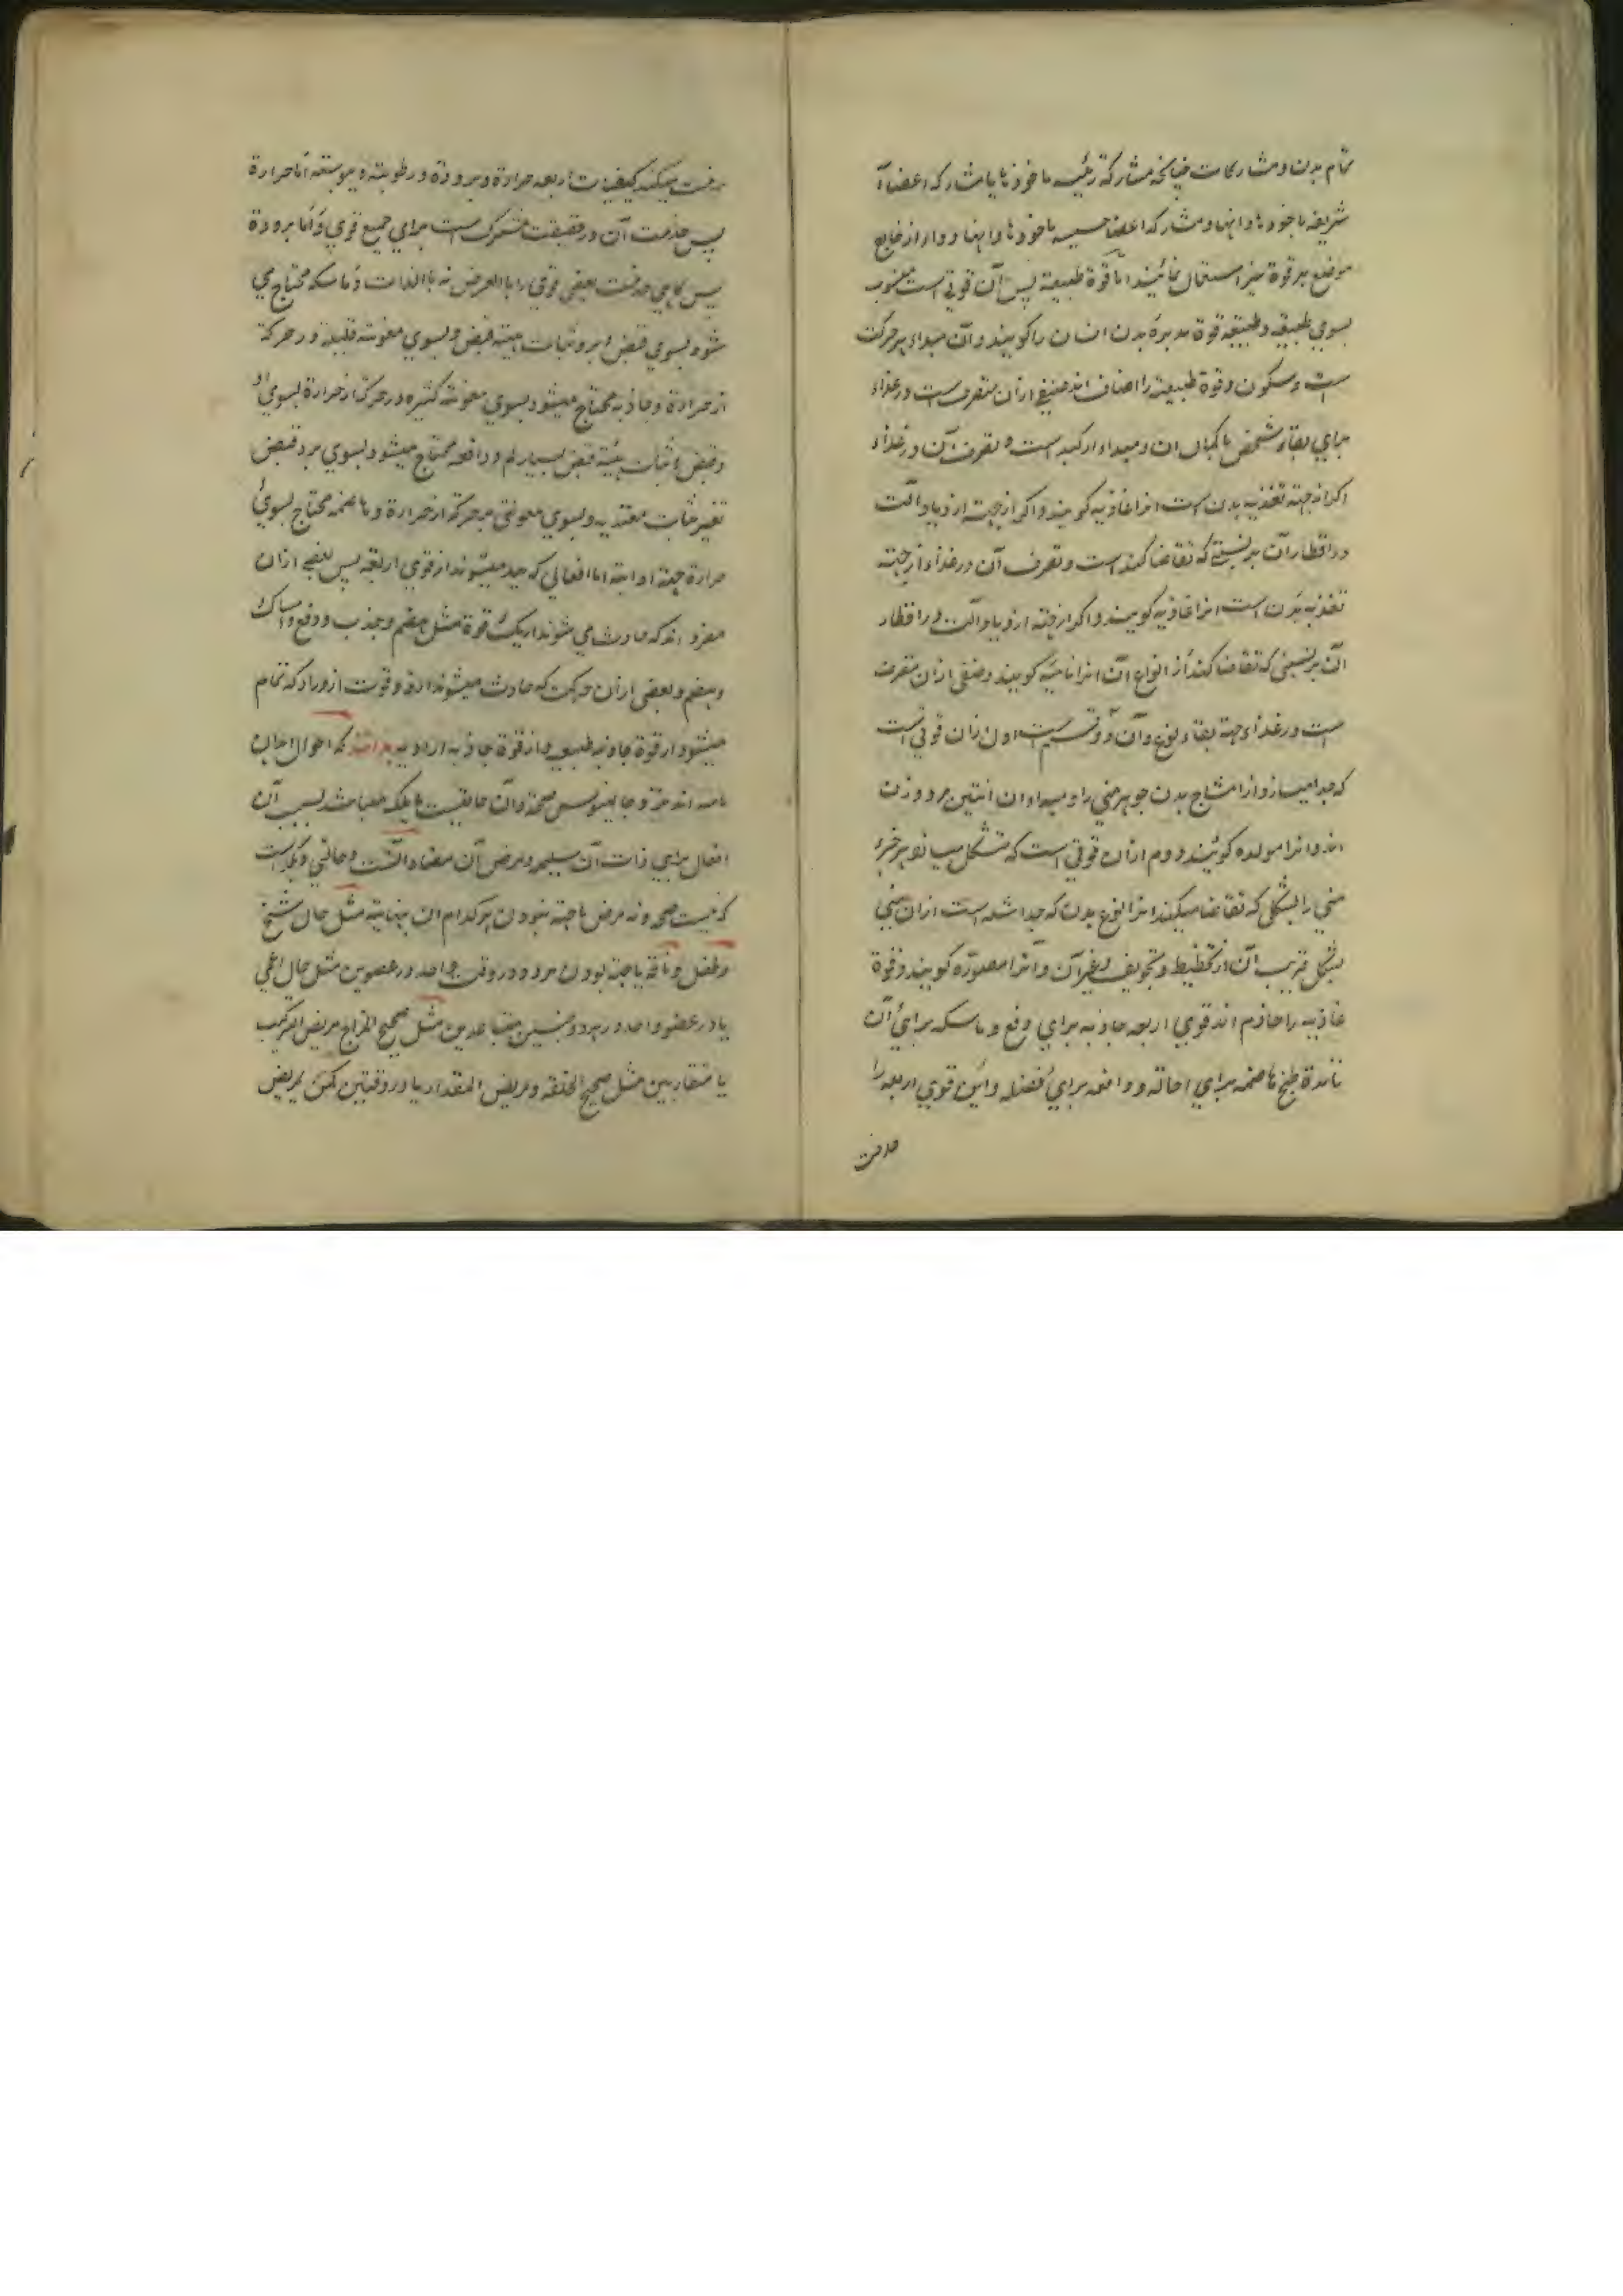 تمام بدن و مشارکات چنانچه مشارکة رئیسه با خود نا یا مشارکه اعضاء
شریفه با خود ها و انها و مشارکه اعضا خسیسه با خود ها و انها و دار از
موضع هر قوة نیز استعمال نمایند اما قوة طبیعیة پس آن قوتی است منسوب
بسوی طبیعه و طبیعه قوة مدبرهٔ بدن انسان را گویند و آن مبداء هر حرکت
است و سکون و قوة طبیعیة را اصناف اند صنفی ازان متصرف است در غذاء
برای بقاء شخص با کمال ان و مبداء او کبد است و تصرف آن در غذاء
اگر از جهته تغذیه بدن است انرا غاذیه گویند و اگر از جهته ازدیاد است
در اقطار آن بر نسبتی که تقاضا کند است و تصرف آن در غذاء از جهته
تغذیه بدن است انرا غاذیه گویند و اگر از جهته ازدیاد است در اقطار
آن بر نسبتی که تقاضا کند از انواع آن انرا نامیه گویند و صنفی ازان متصرف
است در غذاء جهة بقاء نوع و آن دو قسم است اول ازان قوتی است
که جدا میسازد از امشاج بدن جوهر منی را و مبداء ان انثیین مرد و زن
اند و انرا مولده گویند دوم ازان قوتی است که متشکل میسازد هر جزء
منی را بشکلی که تقاضا میکند انرا نوع بدن که جدا شده است ازان منی
بشکل قریب آن از تخطیط و تجویف و غیر آن و آنرا مصوّره گویند و قوة
غاذیه را خادم اند قوی اربعه جاذبه برای دفع و ماسکه برای آن
تا مدة طبخ هاضمه برای احاله و دافعه برای فضله و این قوی اربعه را
خدمت
خدمت میکنند کیفیات اربعه حرارة و برودة و رطوبته و یبوسته اما حرارة
پس خدمت آن در حقیقت مشترک است برای جمیع قوی و اما برودة
پس گاهی خدمت بعضی قوی را بالعرض نه بالذات و ماسکه محتاج می
شود بسوی قبض ابر و ثبات هیئة قبض و بسوی معونته قلیلة در حرکة
از حرارة و جاذبه محتاج میشود بسوی معونته کثیره در حرکة از حرارة بسوی
و قبض و اثبات هیئة قبض بسیار کم و دافعه محتاج میشود بسوی برد قبض
غیر ثبات معتد به و بسوی معونتی بر حرکة از حرارة و هاضمه محتاج بسوی
حرارة جهته اما افعالی که پیدا میشوند از قوی اربعه پس بعضی ازان
مفرد اند که حادث می شوند از یک قوة مثل هضم و جذب و دفع و امساک
و هضم و بعضی ازان مرکب که حادث میشوند از دو قوت ازدراد که تمام
میشود از قوة جاذبه طبیعیه و از قوة جاذبه ارادیه بدانند که احوال ابدان
صحة و آن حالتیست یا ملکه میباشد بسبب آن
افعال برای ذات آن سلیم و مرض آن مضاد آنست و حالتی دیگر است
که نیست صحه و نه مرض یا جهته نبودن هر کدام ان بنهایته مثل حال شیخ
و طفل و ناقه یا جهته بودن هر دو در وقت واحد در عضوین مثل حال اعمی
یا در عضو واحد در هر دو جنسین متباعدین مثل صحیح المزاج مریض الترکیب
یا متقاربین مثل صحیح الخلقه و مریض المقدار یا در وقتین کمن یمرض